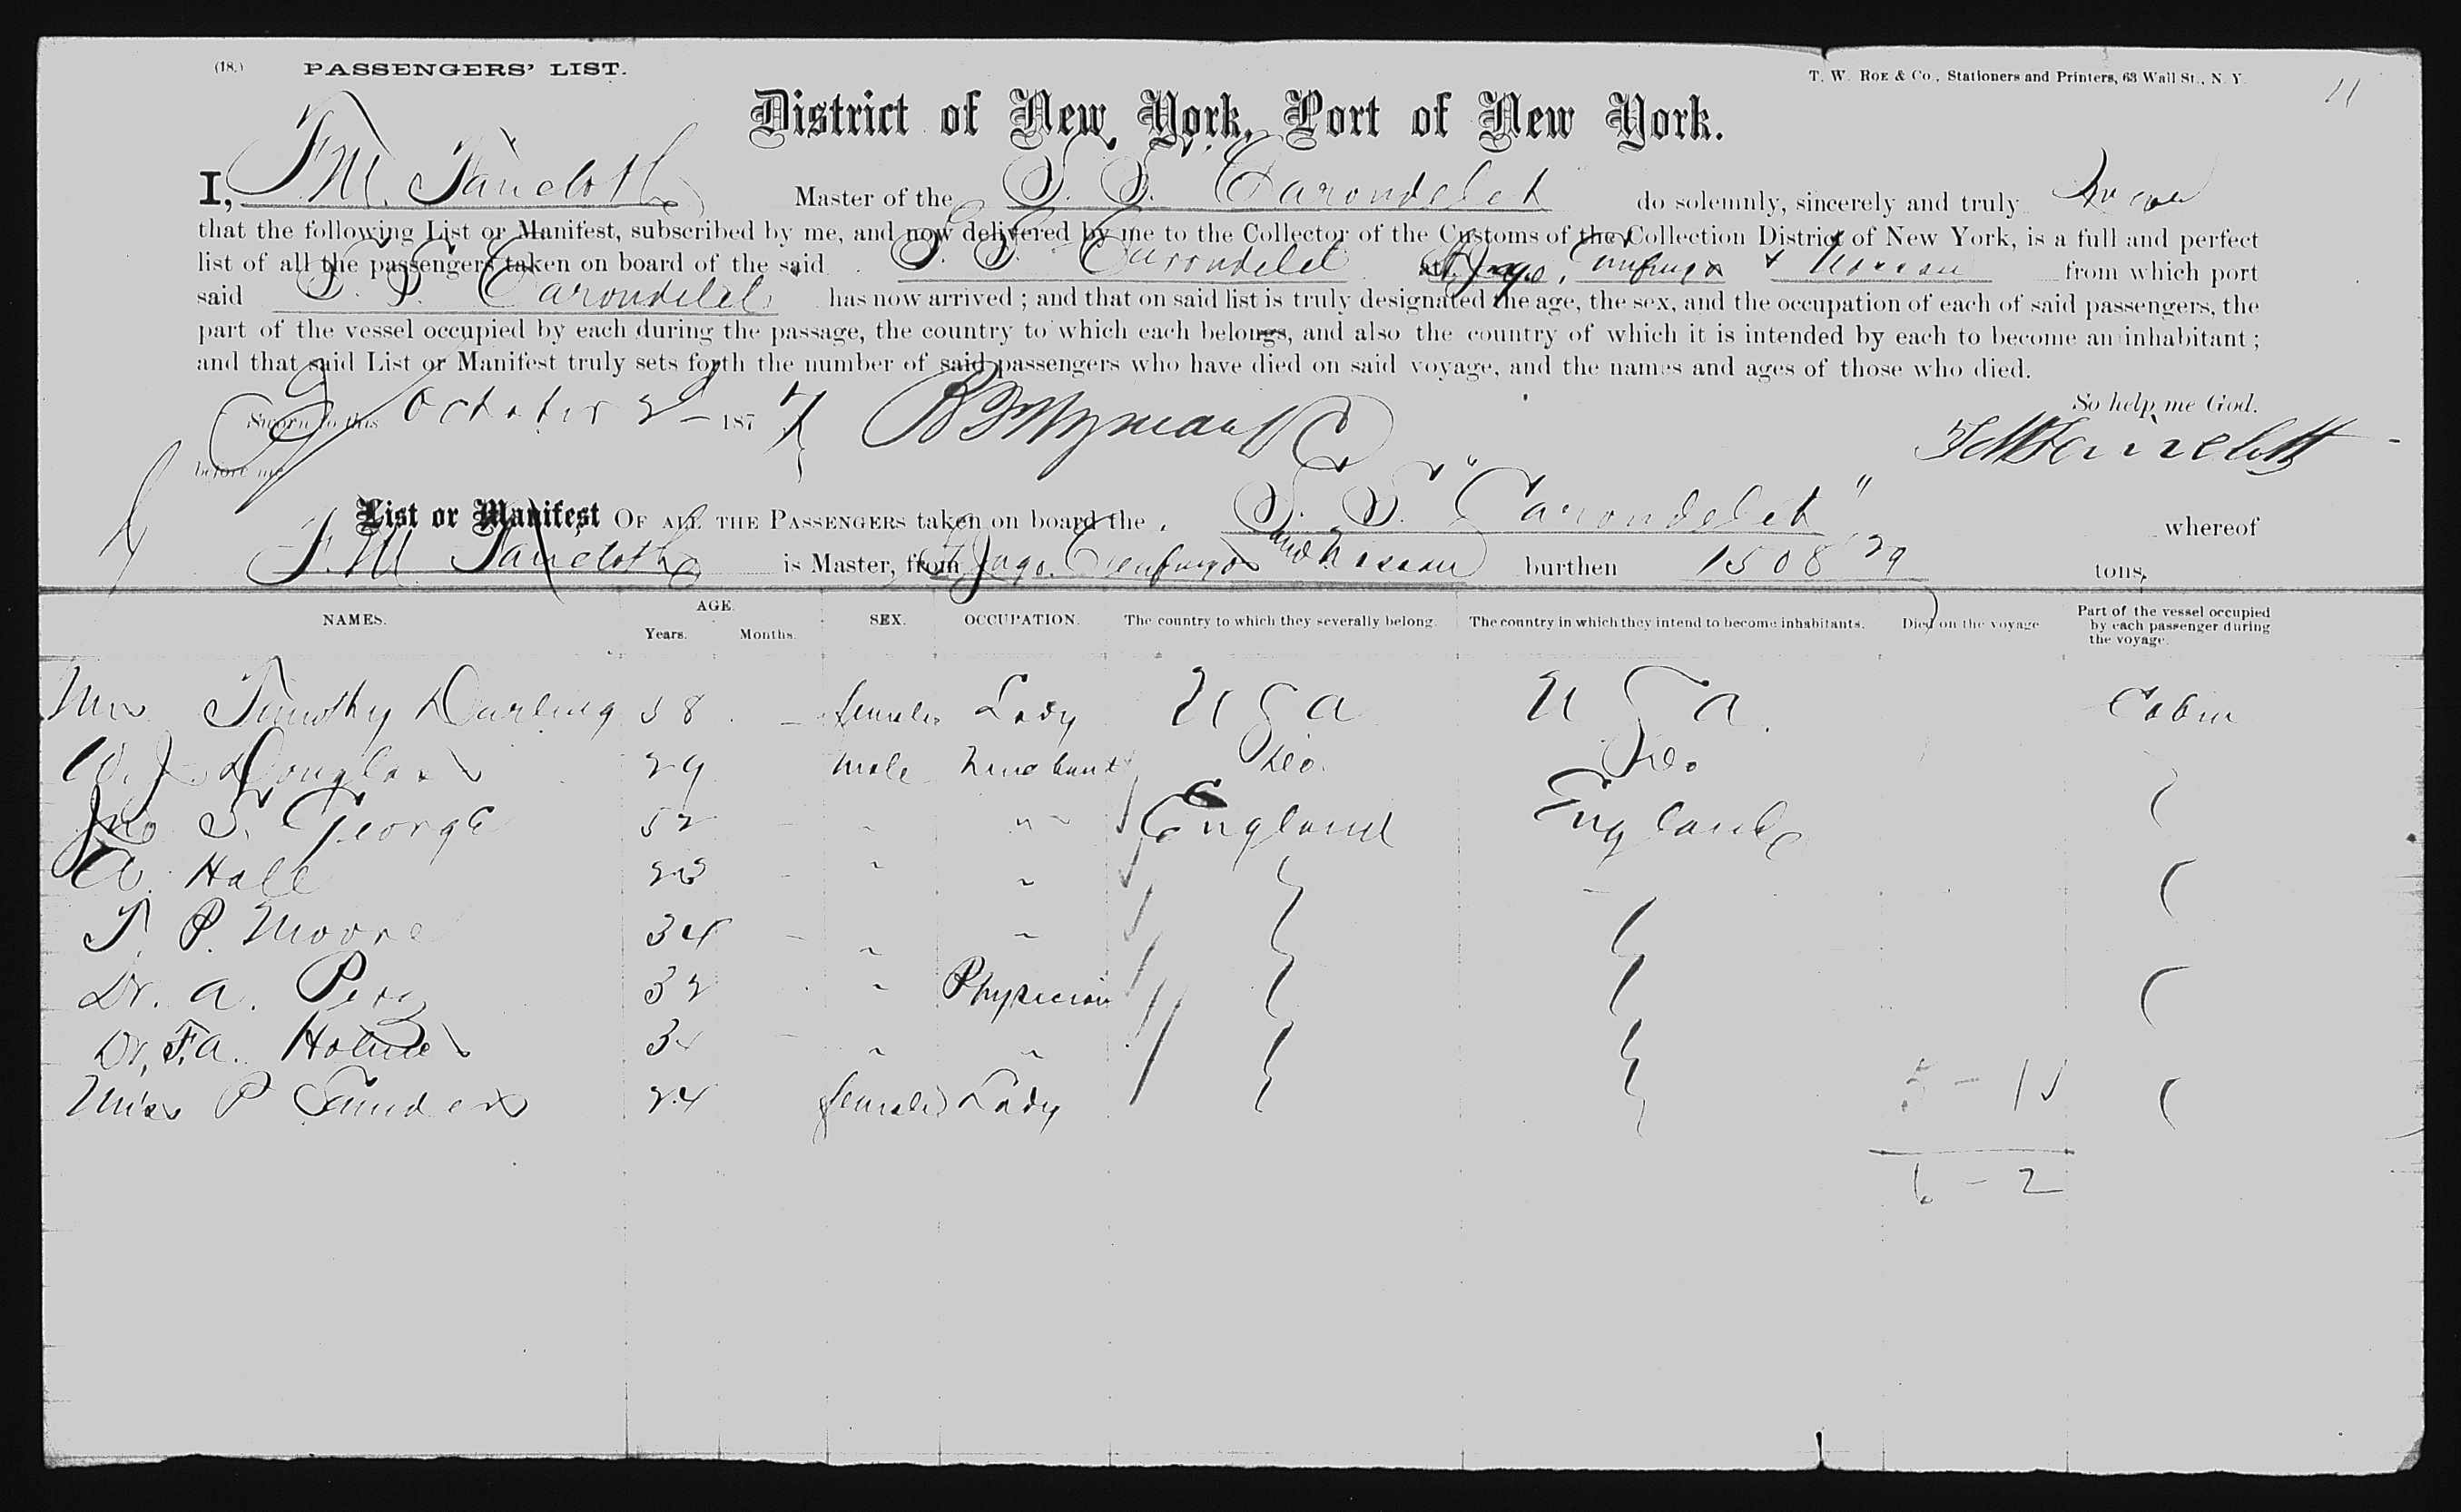 (18.) PASSENGERS' LIST. T. W. ROE & Co., Stationers and Printers, 63 Wall St., N. Y. 11
District of New York, Port of New York.
I, F. M. Faircloth Master of the S. S. Carondelet do solemnly, sincerely and truly swear
that the following List or Manifest, subscribed by me, and now delivered by me to the Collector of the Customs of the Collection District of New York, is a full and perfect
list of all the passengers taken on board of the said S. S. Carondelet at St Jago, Cienfuegos & Nassau from which port
said S. S. Carondelet has now arrived ; and that on said list is truly designated the age, the sex, and the occupation of each of said passengers, the
part of the vessel occupied by each during the passage, the country to which each belongs, and also the country of which it is intended by each to become an inhabitant ;
and that said List or Manifest truly sets forth the number of said passengers who have died on said voyage, and the names and ages of those who died.
So help me God.
Sworn to this October 2 1877 F M Faircloth
before me
List or Manifest OF ALL THE PASSENGERS taken on board the S. S. "Carondelet" whereof
F. M. Faircloth is Master, from St Jago, Cienfuegos and Nassau burthen 1508 29 tons,
NAMES. AGE. Years. Months. SEX. OCCUPATION. The country to which they severally belong. The country in which they intend to become inhabitants. Died on the voyage Part of the vessel occupied by each passenger during the voyage.
Mrs Timothy Darling 58 - female Lady U S A U S A. Cabin
W. J. Douglass 29 male Merchant Do. Do.
Jno S. George 52 - " " England England
W. Hall 23 - " "
T. P. Moore 34 - " "
Dr. A. 32 " Physician
Dr. F. A. Holmes 34 - " "
Miss P Saunders 24 female Lady
5 - 1
6 - 2